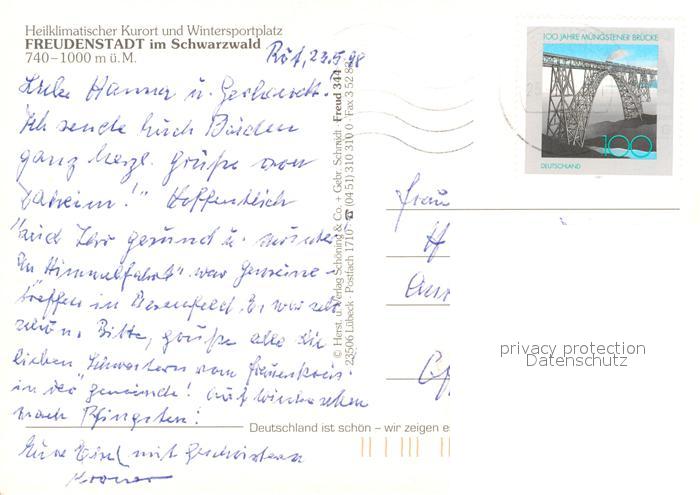 Heilklimatischer Kurort und Wintersportplatz
FREUDENSTADT im Schwarzwald
740–1000 m ü. M.
Röt, 23.5.98
Liebe Hanna u. Gerhard.
Ich sende Euch Beiden
ganz herzl. Grüße von
daheim!" Hoffentlich
seid Ihr gesund u. munter
"An Himmelfahrt" war Gemeinde
treffen in Besenfeld. Es war sehr
schön. Bitte, grüße alle die
lieben Schwestern vom Frauenkreis
in der Gemeinde! Auf Wiedersehen
nach Pfingsten!
Eure mit Geschwistern
© Herst. u. Verlag Schöning & Co. + Gebr. Schmidt · Freud 344
23506 Lübeck · Postfach 1710 ☎ (0451) 310 310 · Fax 3 52 82
100 JAHRE MÜNGSTENER BRÜCKE
100
DEUTSCHLAND
Frau
H
Deutschland ist schön – wir zeigen e
privacy protection
Datenschutz